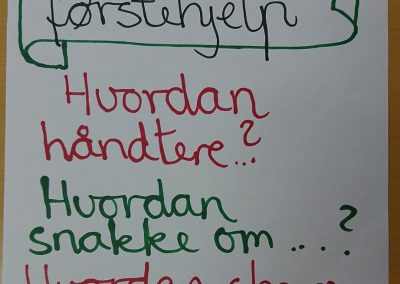 førstehjelp
Hvordan
håndtere..?
Hvordan
snakke om ...?
Hvordan